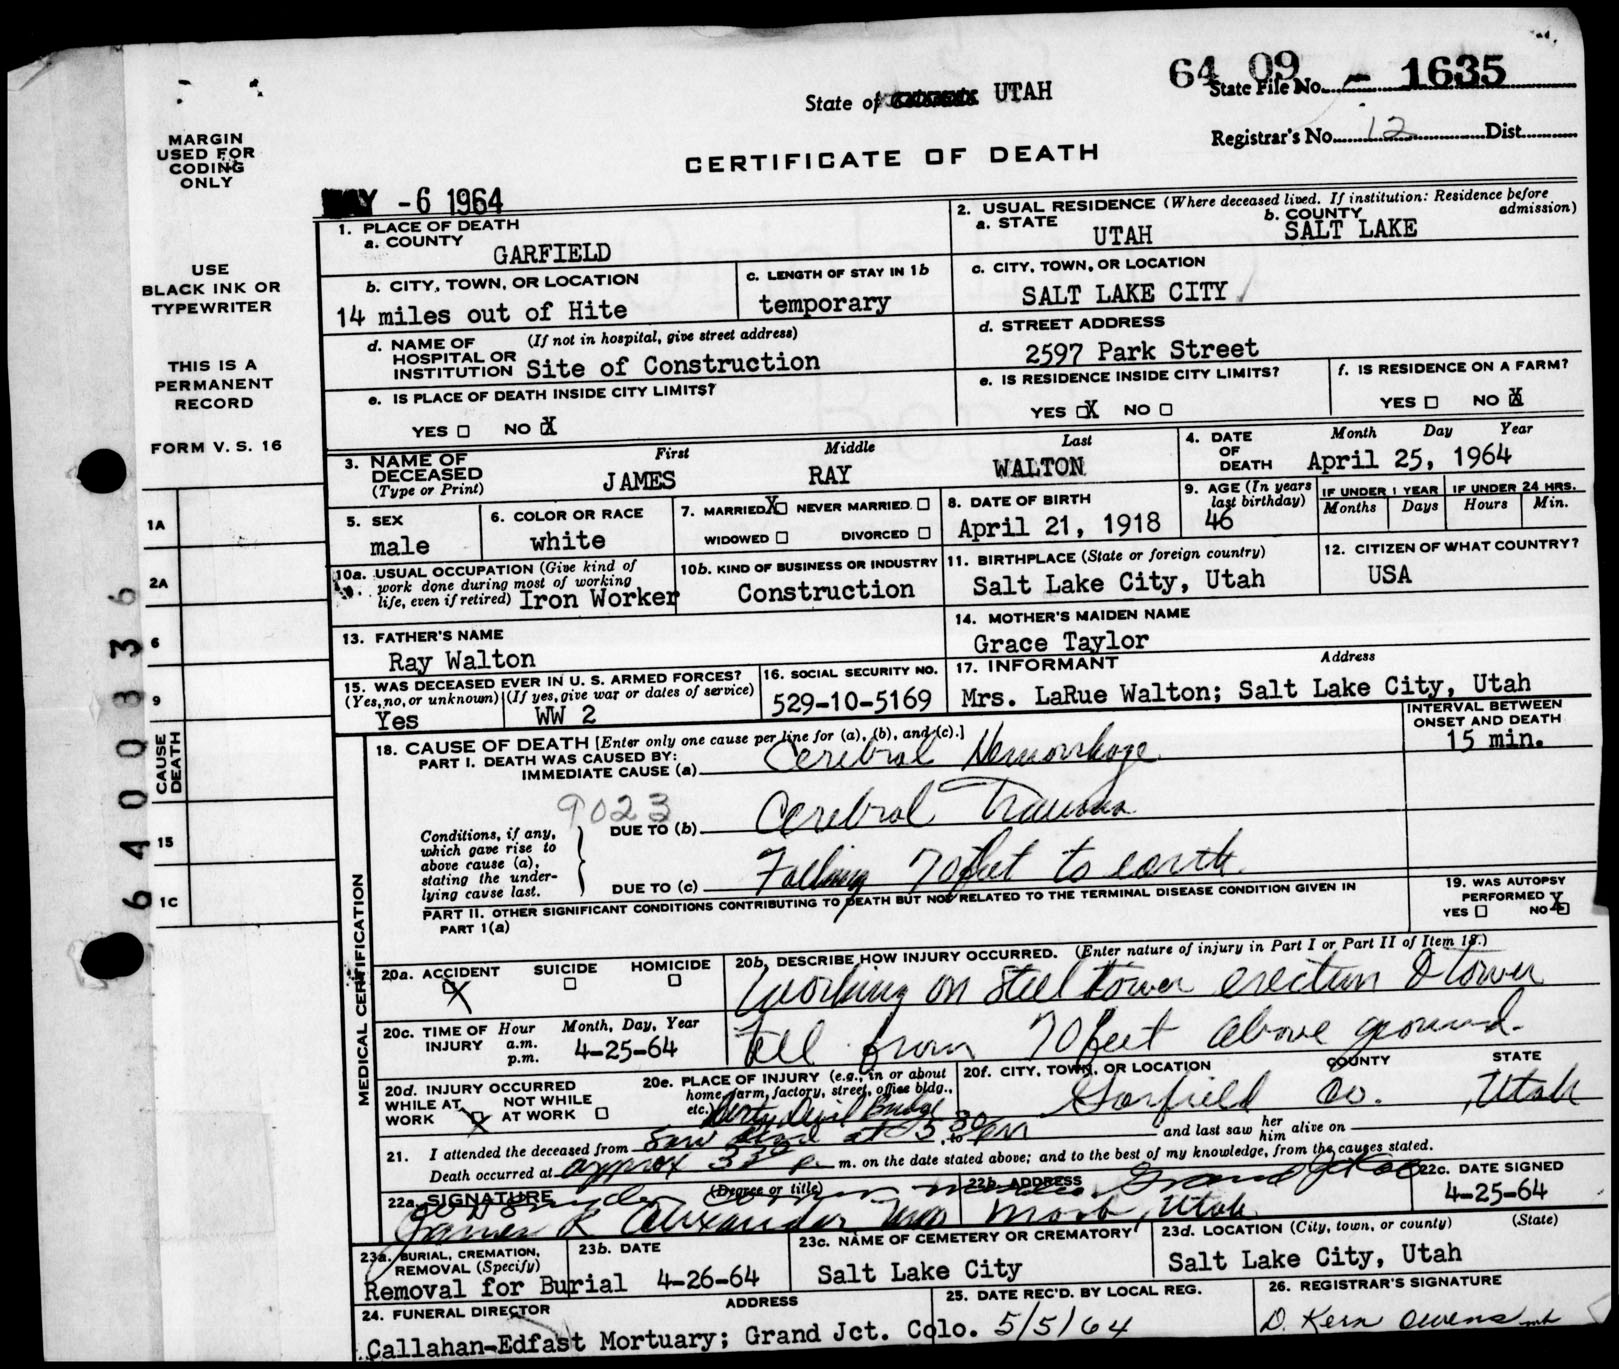 64 09 - 1635
State of UTAH
State File No.
Registrar's No. 12 Dist.
CERTIFICATE OF DEATH
MAY -6 1964
MARGIN
USED FOR
CODING
ONLY
USE
BLACK INK OR
TYPEWRITER
THIS IS A
PERMANENT
RECORD
FORM V. S. 16
1A
2A
6
9
CAUSE
DEATH
15
1C
6400836
1. PLACE OF DEATH
a. COUNTY
GARFIELD
2. USUAL RESIDENCE (Where deceased lived. If institution: Residence before admission)
a. STATE
UTAH
b. COUNTY
SALT LAKE
b. CITY, TOWN, OR LOCATION
14 miles out of Hite
c. LENGTH OF STAY IN 1b
temporary
c. CITY, TOWN, OR LOCATION
SALT LAKE CITY
d. NAME OF HOSPITAL OR INSTITUTION
(If not in hospital, give street address)
Site of Construction
d. STREET ADDRESS
2597 Park Street
e. IS PLACE OF DEATH INSIDE CITY LIMITS?
YES ☐ NO ☒
e. IS RESIDENCE INSIDE CITY LIMITS?
YES ☒ NO ☐
f. IS RESIDENCE ON A FARM?
YES ☐ NO ☒
3. NAME OF DECEASED
(Type or Print)
First Middle Last
JAMES RAY WALTON
4. DATE OF DEATH
Month Day Year
April 25, 1964
5. SEX
male
6. COLOR OR RACE
white
7. MARRIED ☒ NEVER MARRIED ☐
WIDOWED ☐ DIVORCED ☐
8. DATE OF BIRTH
April 21, 1918
9. AGE (In years last birthday)
46
IF UNDER 1 YEAR
Months Days
IF UNDER 24 HRS.
Hours Min.
10a. USUAL OCCUPATION (Give kind of work done during most of working life, even if retired)
Iron Worker
10b. KIND OF BUSINESS OR INDUSTRY
Construction
11. BIRTHPLACE (State or foreign country)
Salt Lake City, Utah
12. CITIZEN OF WHAT COUNTRY?
USA
13. FATHER'S NAME
Ray Walton
14. MOTHER'S MAIDEN NAME
Grace Taylor
15. WAS DECEASED EVER IN U. S. ARMED FORCES?
(Yes, no, or unknown) (If yes, give war or dates of service)
Yes WW 2
16. SOCIAL SECURITY NO.
529-10-5169
17. INFORMANT Address
Mrs. LaRue Walton; Salt Lake City, Utah
MEDICAL CERTIFICATION
18. CAUSE OF DEATH [Enter only one cause per line for (a), (b), and (c).]
PART I. DEATH WAS CAUSED BY:
IMMEDIATE CAUSE (a) Cerebral Hemorrhage
INTERVAL BETWEEN ONSET AND DEATH
15 min.
9023
Conditions, if any, which gave rise to above cause (a), stating the underlying cause last.
DUE TO (b) Cerebral Trauma
DUE TO (c) Falling 70 feet to earth
PART II. OTHER SIGNIFICANT CONDITIONS CONTRIBUTING TO DEATH BUT NOT RELATED TO THE TERMINAL DISEASE CONDITION GIVEN IN PART 1(a)
19. WAS AUTOPSY PERFORMED
YES ☐ NO ☒
20a. ACCIDENT SUICIDE HOMICIDE
☒ ☐ ☐
20b. DESCRIBE HOW INJURY OCCURRED. (Enter nature of injury in Part I or Part II of Item 18.)
Working on steel tower erection & tower
fell from 70 feet above ground.
20c. TIME OF INJURY
Hour a.m. p.m.
Month, Day, Year
4-25-64
20d. INJURY OCCURRED
WHILE AT WORK ☒ NOT WHILE AT WORK ☐
20e. PLACE OF INJURY (e.g., in or about home, farm, factory, street, office bldg., etc.)
Dirty Devil Bridge
20f. CITY, TOWN, OR LOCATION COUNTY STATE
Garfield Co. Utah
21. I attended the deceased from Saw dead at 5 30 to pm and last saw her him alive on
Death occurred at approx 3 30 p m. on the date stated above; and to the best of my knowledge, from the causes stated.
22a. SIGNATURE (Degree or title)
James R Alexander
22b. ADDRESS
Moab, Utah
22c. DATE SIGNED
4-25-64
23a. BURIAL, CREMATION, REMOVAL (Specify)
Removal for Burial
23b. DATE
4-26-64
23c. NAME OF CEMETERY OR CREMATORY
Salt Lake City
23d. LOCATION (City, town, or county) (State)
Salt Lake City, Utah
24. FUNERAL DIRECTOR ADDRESS
Callahan-Edfast Mortuary; Grand Jct. Colo.
25. DATE REC'D. BY LOCAL REG.
5/5/64
26. REGISTRAR'S SIGNATURE
D. Kern Owens